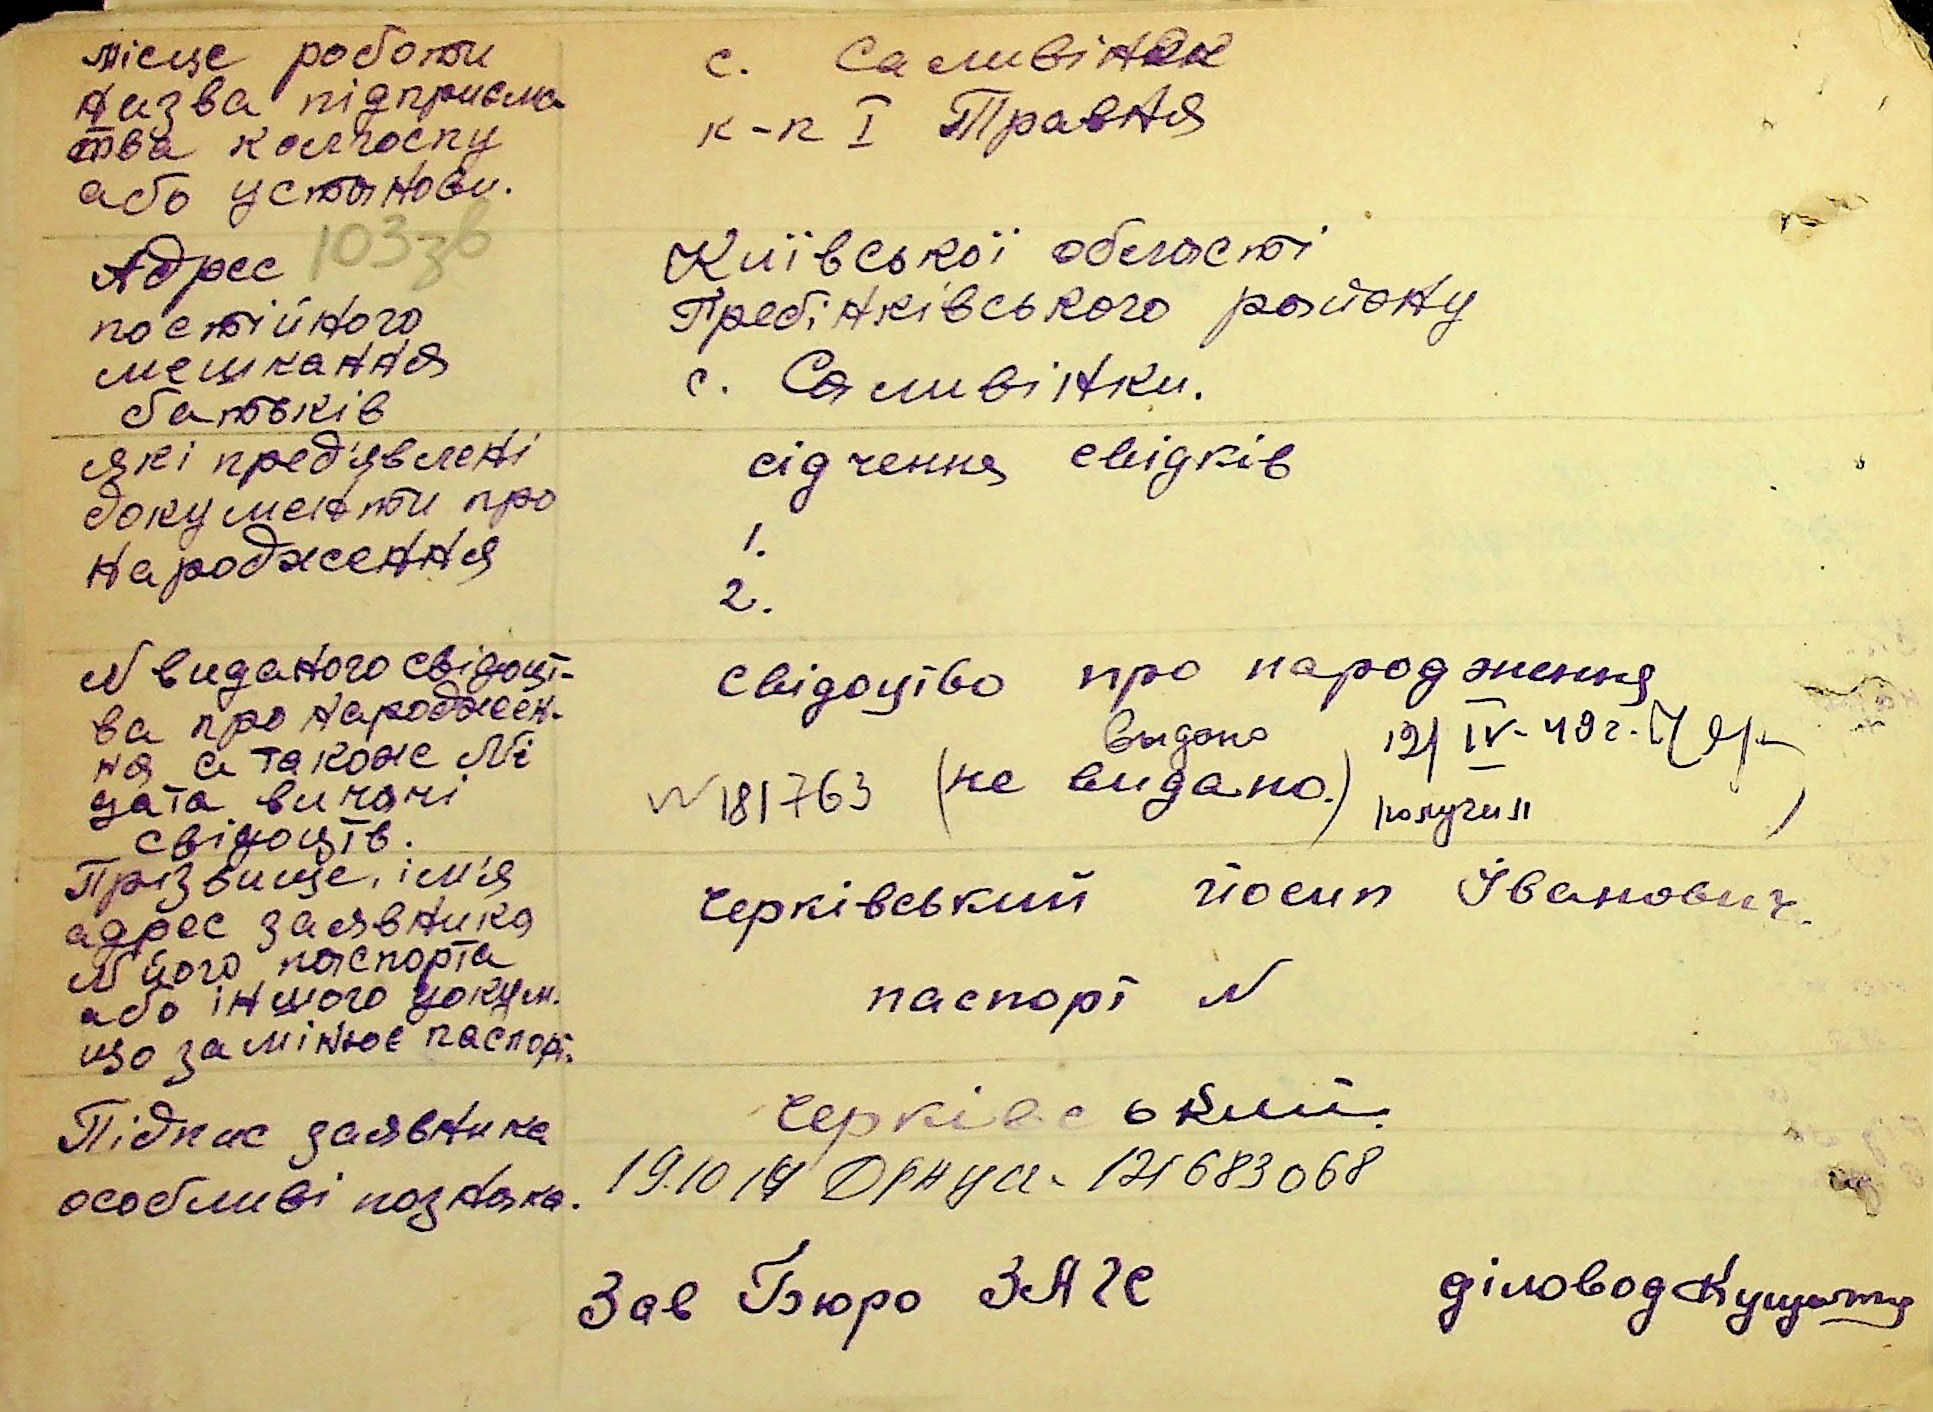 місце роботи
назва підприємс
тва колгоспу
або установи.
с. Саливінки
к-п І Травня
103зв
Адрес
постійного
мешкання
батьків
Київської області
Гребінківського району
с. Саливінки.
які пред'явлені
документи про
народження
сідчення свідків
1.
2.
N виданого свідоцт-
ва про народжен-
ня а також № і
дата видачі
свідоцтв.
свідоцтво про народження
видано 12/IV-49г.
N 181763 (не видано.) получил
Прізвище, ім'я
адрес заявника
N його паспорта
або іншого докум.
що замінює паспорт.
Черківський Йосип Іванович.
паспорт N
Підпис заявника
Черківський.
особливі познака.
19.10 683068
Зав Бюро ЗАГС
діловод